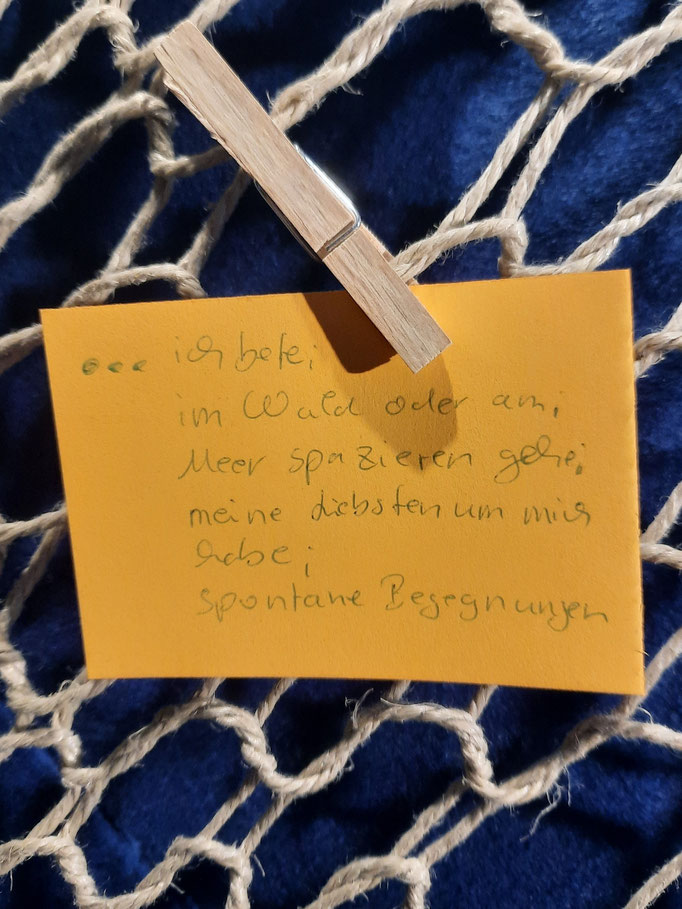 ... ich bete;
im Wald oder am;
Meer spazieren gehe;
meine Liebsten um mich
habe;
spontane Begegnungen